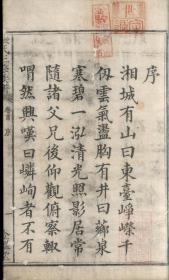 序
湘城有山曰東臺崢嶸千
仭雲氣盪胸有井曰薌泉
寒碧一泓清光照影居常
隨諸父兄後仰觀俯察輙
喟然興嘆曰嶙峋者不有